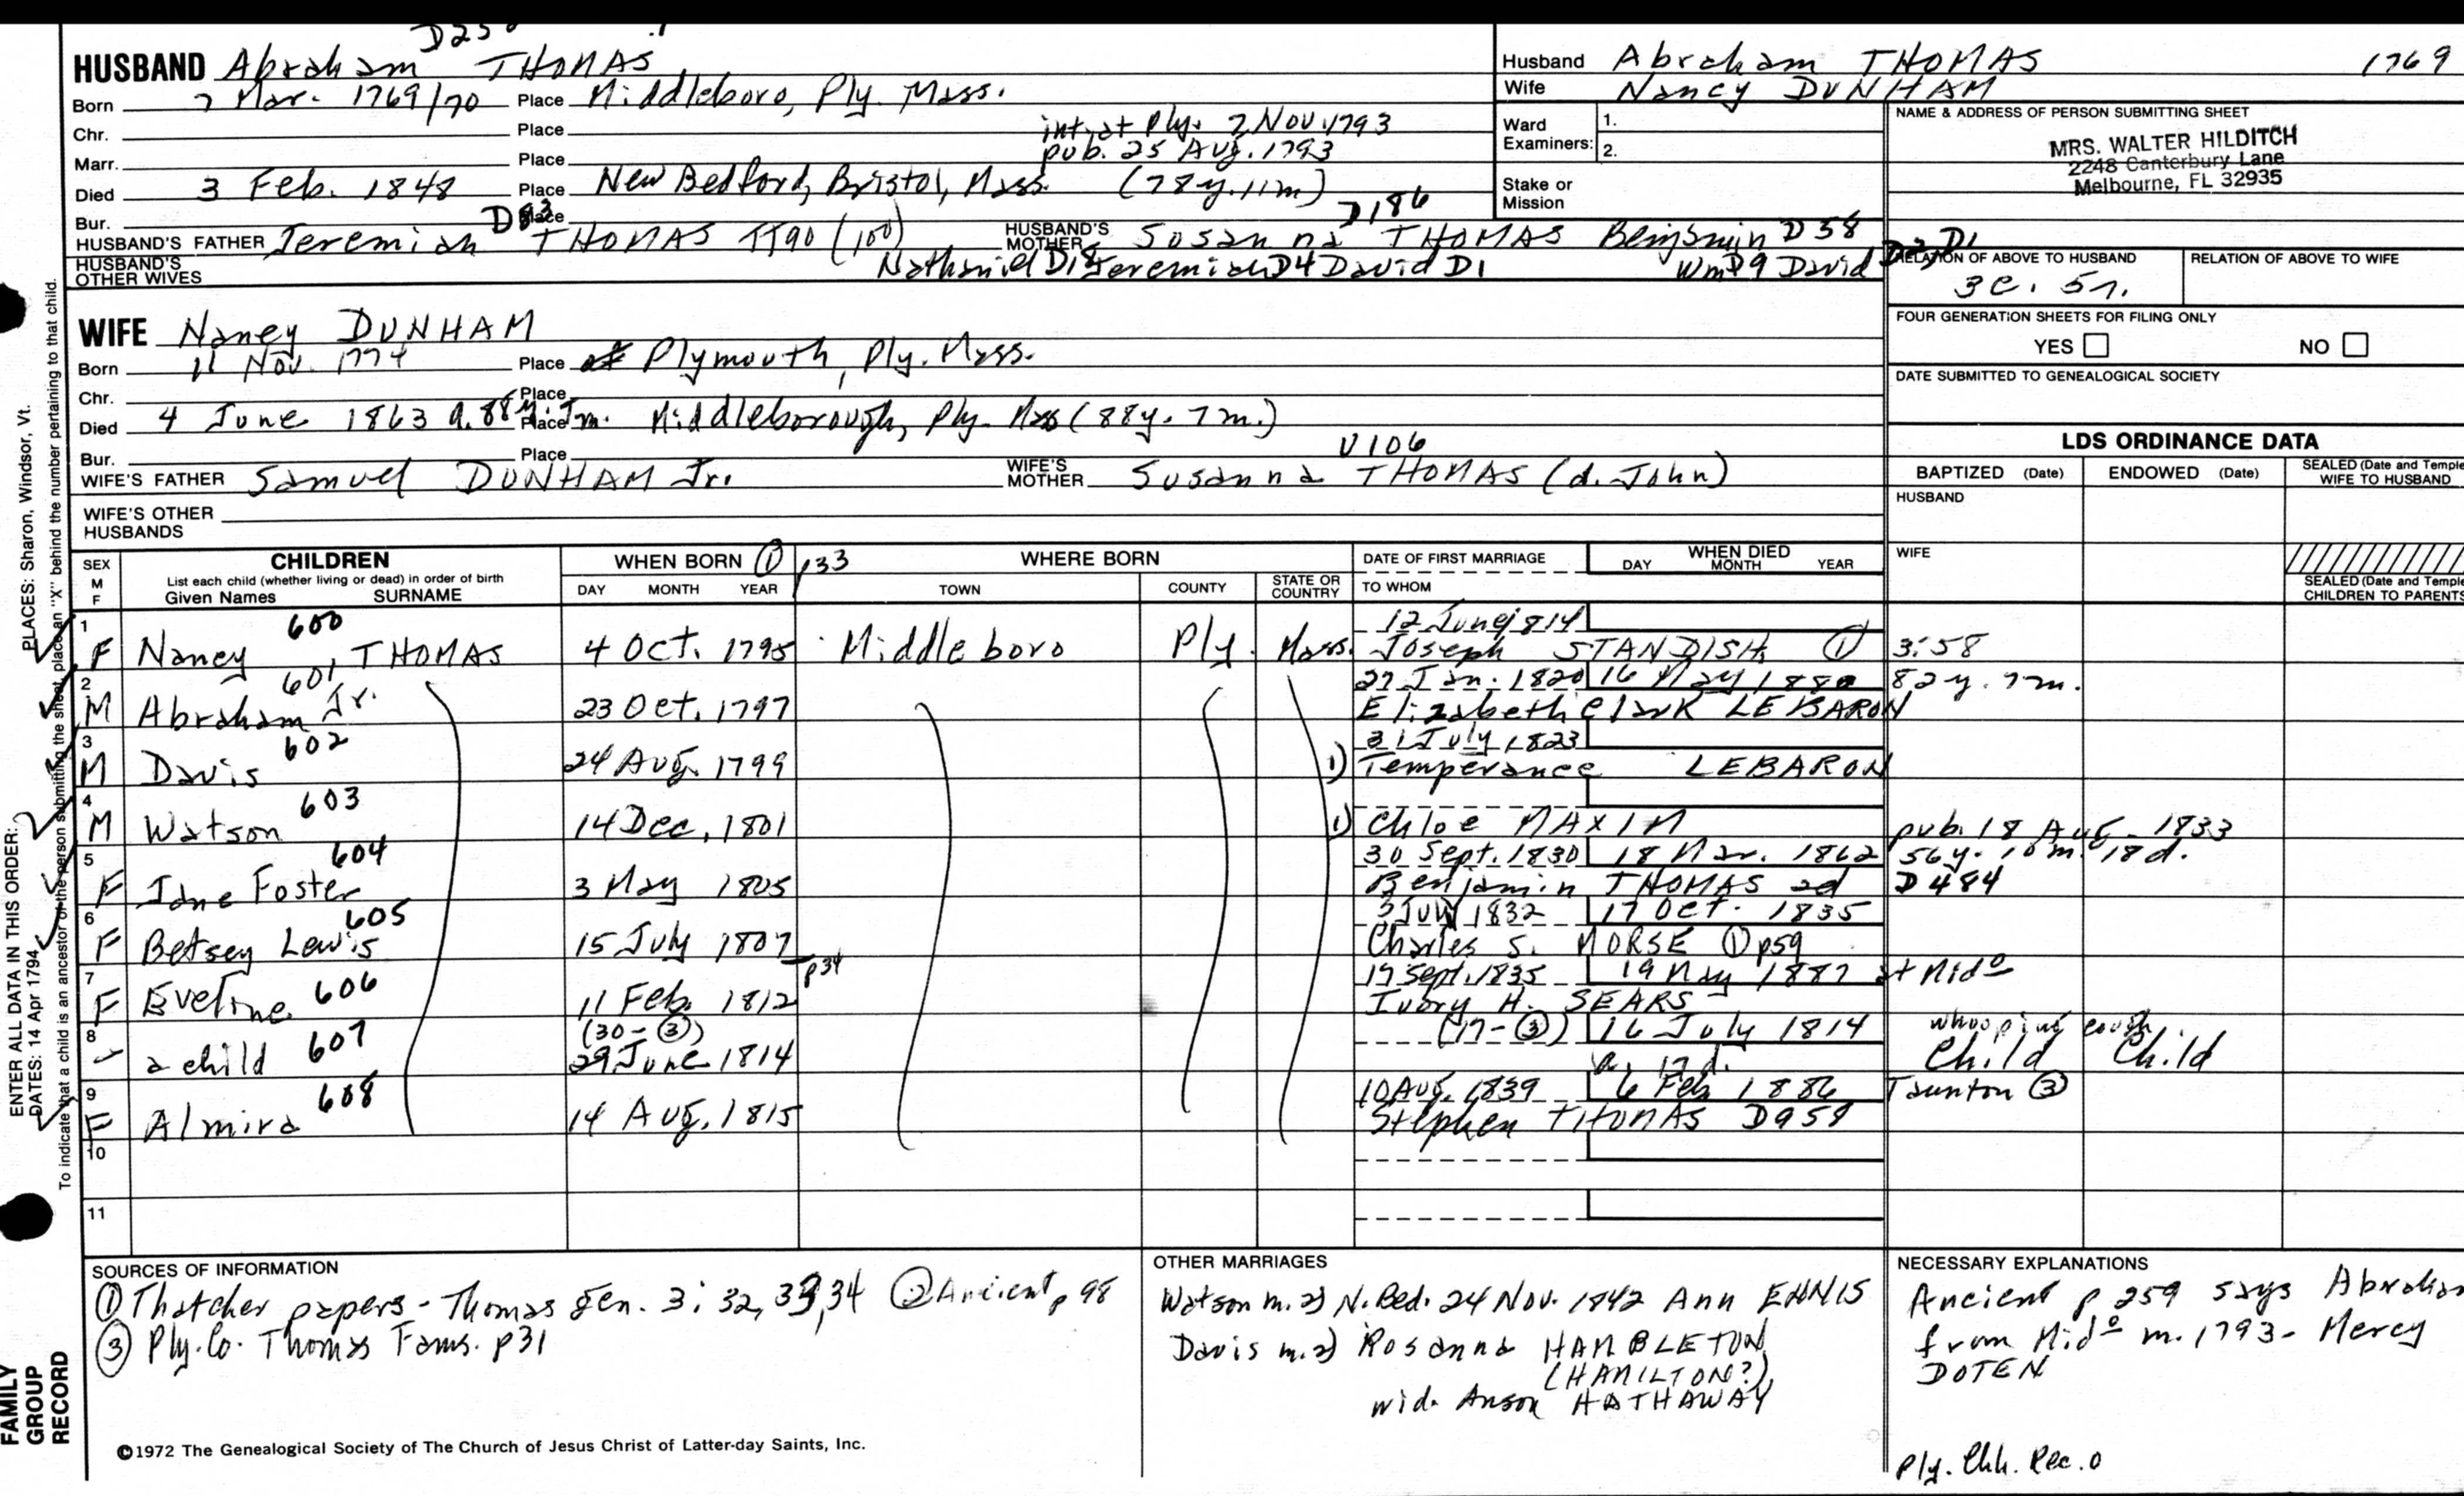 HUSBAND Abraham THOMAS
Born 7 Mar. 1769/70 Place Middleboro, Ply. Mass.
Chr. Place int. at Ply. 2 Nov. 1793
Marr. Place pub. 25 Aug. 1793
Died 3 Feb. 1848 Place New Bedford, Bristol, Mass. (78y. 11m)
Bur. Place
HUSBAND'S FATHER Jeremiah THOMAS (100) HUSBAND'S MOTHER Susanna THOMAS Benjamin D58
D186
Nathaniel D18 Jeremiah D4 David D1 Wm D9 David
HUSBAND'S OTHER WIVES
Husband Abraham THOMAS 1769
Wife Nancy DUNHAM
Ward Examiners: 1.
2.
Stake or Mission
NAME & ADDRESS OF PERSON SUBMITTING SHEET
MRS. WALTER HILDITCH
2248 Canterbury Lane
Melbourne, FL 32935
RELATION OF ABOVE TO HUSBAND RELATION OF ABOVE TO WIFE
3c. 5r.
FOUR GENERATION SHEETS FOR FILING ONLY
YES NO
DATE SUBMITTED TO GENEALOGICAL SOCIETY
WIFE Nancy DUNHAM
Born 11 Nov. 1774 Place of Plymouth, Ply. Mass.
Chr. Place
Died 4 June 1863 Place Middleborough, Ply. Mass (88y. 7m.)
Bur. Place
WIFE'S FATHER Samuel DUNHAM Jr. WIFE'S MOTHER Susanna THOMAS (d. John)
WIFE'S OTHER HUSBANDS
LDS ORDINANCE DATA
BAPTIZED (Date) ENDOWED (Date) SEALED (Date and Temple) WIFE TO HUSBAND
HUSBAND
WIFE
SEALED (Date and Temple) CHILDREN TO PARENTS
SEX M F
CHILDREN
List each child (whether living or dead) in order of birth
Given Names SURNAME
WHEN BORN ① p33
DAY MONTH YEAR
WHERE BORN
TOWN COUNTY STATE OR COUNTRY
DATE OF FIRST MARRIAGE
TO WHOM
WHEN DIED
DAY MONTH YEAR
1 600 12 June 1814
F Nancy THOMAS 4 Oct. 1795 Middleboro Ply. Mass. Joseph STANDISH ① 3:58
2 601 27 Jan. 1820 16 May 1880 82y. 7m.
M Abraham Jr. 23 Oct. 1797 Elizabeth Clark LEBARON
3 602 31 July 1823
M Davis 24 Aug. 1799 1) Temperance LEBARON
4 603
M Watson 14 Dec. 1801 1) Chloe MAXIM pub. 18 Aug. 1833
5 604 30 Sept. 1830 18 Mar. 1862 56y. 10m. 18d.
F Jane Foster 3 May 1805 Benjamin THOMAS 2d D484
6 605 3 July 1832 17 Oct. 1835
F Betsey Lewis 15 July 1807 Charles S. MORSE ① p59
7 606 p34 17 Sept. 1835 19 May 1887 at Midº
F Eveline 11 Feb. 1812 Ivory H. SEARS
8 607 (30-③) (17-③) 16 July 1814 whooping cough
a child 29 June 1814 a. 17d. Child Child
9 608 10 Aug. 1839 6 Feb 1886 Taunton ③
F Almira 14 Aug. 1815 Stephen THOMAS D958
10
11
SOURCES OF INFORMATION
① Thatcher papers - Thomas Gen. 3: 32, 33, 34 ② Ancient p 98
③ Ply. Co. Thomas Fams. p31
OTHER MARRIAGES
Watson m. 2) N. Bed. 24 Nov. 1842 Ann ENNIS
Davis m. 2) Rosanna HAMBLETON
(HAMILTON?)
wid. Anson HATHAWAY
NECESSARY EXPLANATIONS
Ancient p 259 says Abraham
from Midº m. 1793 - Mercy
DOTEN
Ply. Chh. Rec. o
©1972 The Genealogical Society of The Church of Jesus Christ of Latter-day Saints, Inc.
FAMILY
GROUP
RECORD
ENTER ALL DATA IN THIS ORDER:
DATES: 14 Apr 1794
PLACES: Sharon, Windsor, Vt.
To indicate that a child is an ancestor of the person submitting the sheet, place an "X" behind the number pertaining to that child.